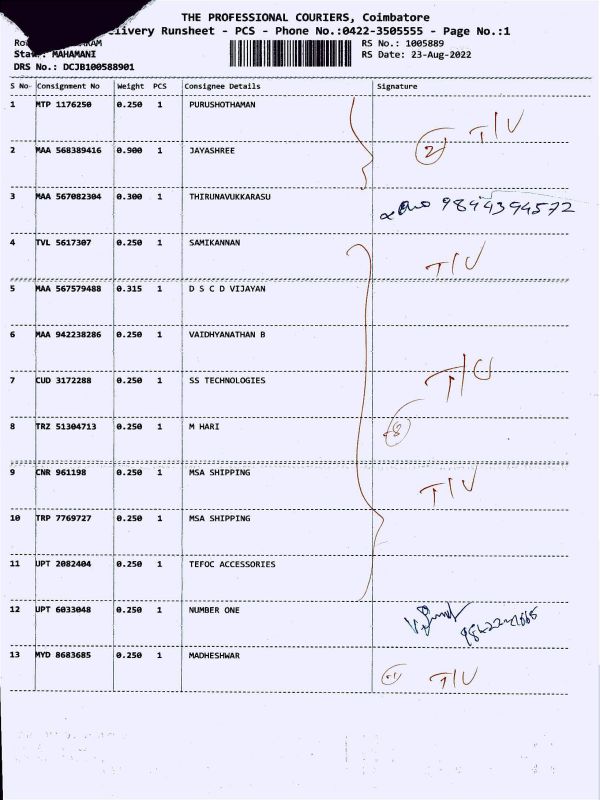 THE PROFESSIONAL COURIERS, Coimbatore
livery Runsheet - PCS - Phone No.:0422-3505555 - Page No.:1
RS No.: 1005889
MAHAMANI RS Date: 23-Aug-2022
DRS No.: DCJB100588901
S No Consignment No Weight PCS Consignee Details Signature
1 MTP 1176250 0.250 1 PURUSHOTHAMAN
2 T/U
2 MAA 568389416 0.900 1 JAYASHREE
3 MAA 567082304 0.300 1 THIRUNAVUKKARASU
9844394572
4 TVL 5617307 0.250 1 SAMIKANNAN
T/U
5 MAA 567579488 0.315 1 D S C D VIJAYAN
6 MAA 942238286 0.250 1 VAIDHYANATHAN B
7 CUD 3172288 0.250 1 SS TECHNOLOGIES
T/U
8 TRZ 51304713 0.250 1 M HARI
8
9 CNR 961198 0.250 1 MSA SHIPPING
T/U
10 TRP 7769727 0.250 1 MSA SHIPPING
11 UPT 2082404 0.250 1 TEFOC ACCESSORIES
12 UPT 6033048 0.250 1 NUMBER ONE
13 MYD 8683685 0.250 1 MADHESHWAR
T/U